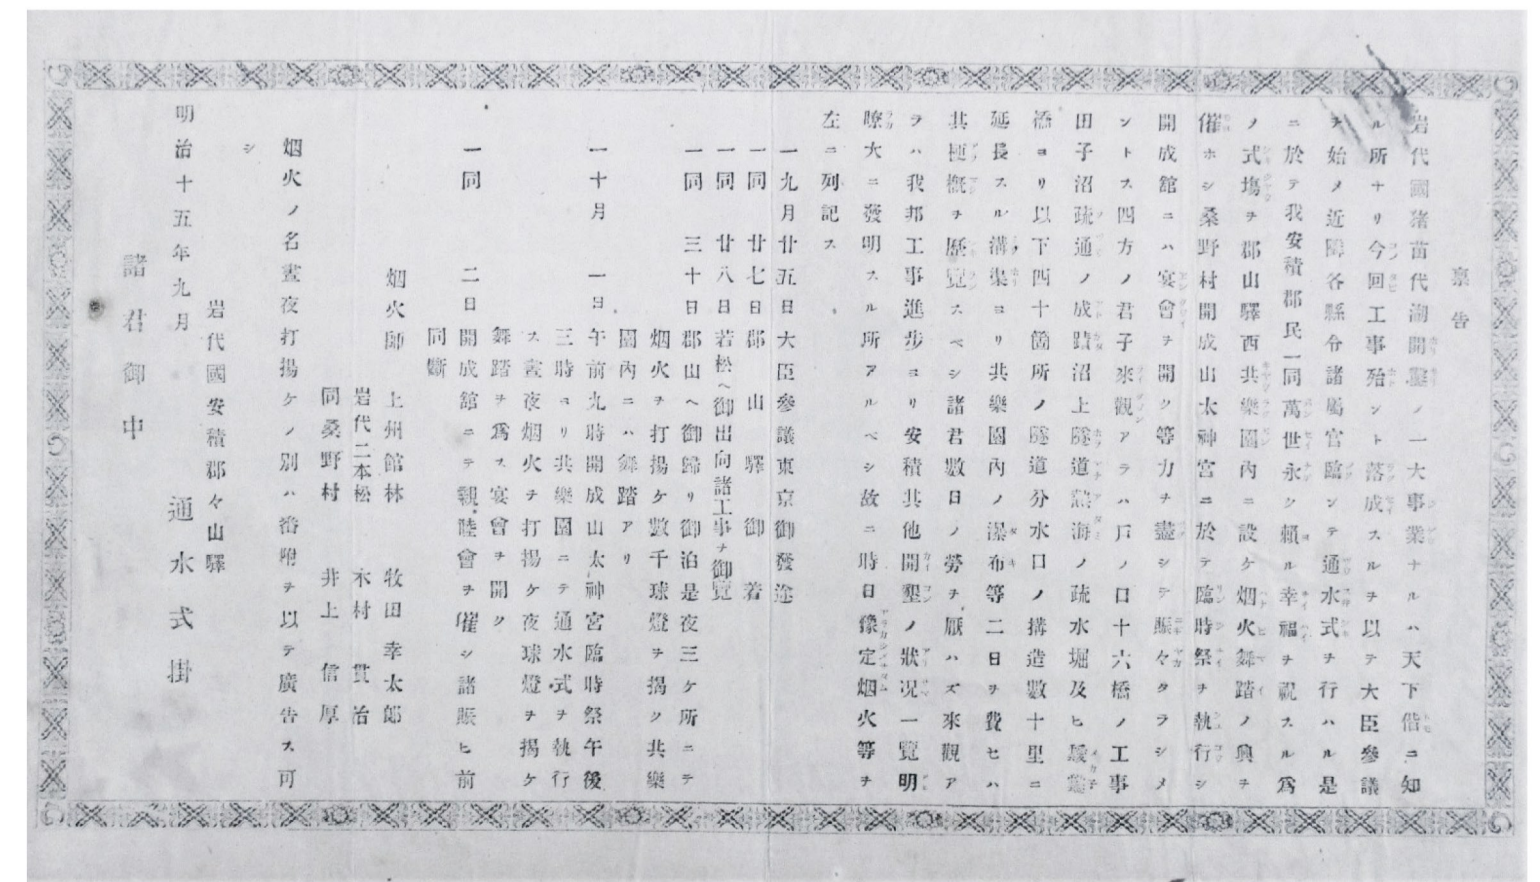 稟告
岩代國猪苗代湖開鑿ノ一大事業ナルハ天下偕ニ知
ル所ナリ今回工事殆ント落成スルヲ以テ大臣參議
ヲ始メ近隣各縣令諸屬官臨ンテ通水式ヲ行ハル是
ニ於テ我安積郡民一同萬世永シ賴ル幸福ヲ祝スル爲
ノ式塲ヲ郡山驛西共樂園內ニ設ケ烟火舞踏ノ興ヲ
催ホシ桑野村開成山太神宮ニ於テ臨時祭ヲ執行シ
開成舘ニハ宴會ヲ開ク等力ヲ盡シテ賑々タラシメ
ントス四方ノ君子來觀アラハ戸ノ口十六橋ノ工事
田子沼疏通ノ成蹟沼上隧道熱海ノ疏水堀及ヒ
橋ヨリ以下四十箇所ノ隧道分水口ノ搆造數十里ニ
延長スル溝渠ヨリ共樂園內ノ瀑布等二日ヲ費セハ
其梗槪ヲ歷覽スベシ諸君數日ノ勞ヲ厭ハズ來觀ア
ラハ我邦工事進步ヨリ安積其他開墾ノ狀况一覽明
瞭大ニ發明スル所アルベシ故ニ時日豫定烟火等ヲ
左ニ列記ス
一九月廿五日大臣參議東京御發途
一同 廿七日郡山驛御着
一同 廿八日若松ヘ御出向諸工事ヲ御覽
一同 三十日郡山ヘ御歸リ御泊是夜三ケ所ニテ
烟火ヲ打揚ケ數千球燈ヲ揭ク共樂
園內ニハ舞踏アリ
一十月 一日午前九時開成山太神宮臨時祭午後
三時ヨリ共樂園ニテ通水式ヲ執行
ス晝夜烟火ヲ打揚ケ夜球燈ヲ揭ケ
舞踏ヲ爲ス宴會ヲ開ク
一同 二日開成舘ニテ親睦會ヲ催シ諸賑ヒ前
同斷
烟火師 上州館林 牧田幸太郎
岩代二本松 木村貫治
同桑野村 井上信厚
烟火ノ名晝夜打揚ケノ別ハ番附ヲ以テ廣告ス可
シ
岩代國安積郡々山驛
明治十五年九月 通水式掛
諸君御中